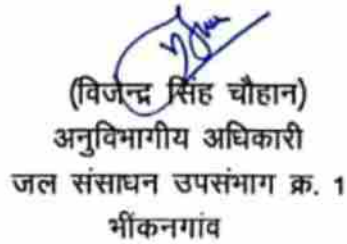 (विजेन्द्र सिंह चौहान)
अनुविभागीय अधिकारी
जल संसाधन उपसंभाग क्र. 1
भींकनगांव